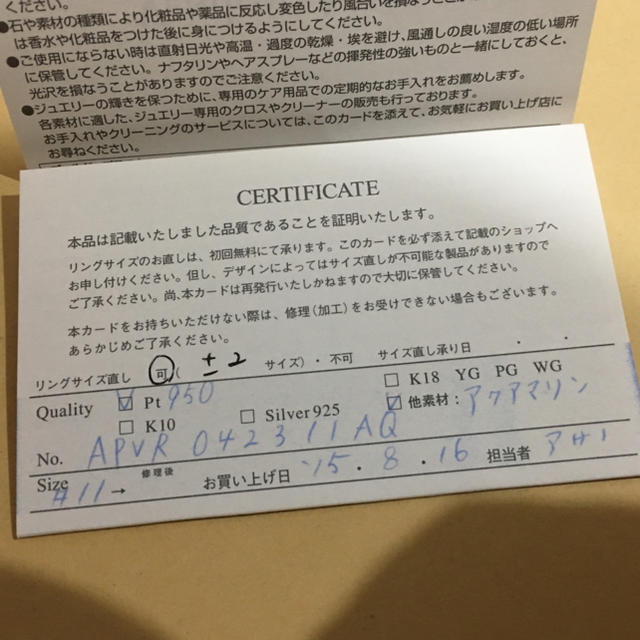 ください。
●石や素材の種類により化粧品や薬品に反応し変色したり風合いを損なうことが
は香水や化粧品をつけた後に身につけるようにしてください。
●ご使用にならない時は直射日光や高温・過度の乾燥・埃を避け、風通しの良い湿度の低い場所
に保管してください。ナフタリンやヘアスプレーなどの揮発性の強いものと一緒にしておくと、
光沢を損なうことがありますのでご注意ください。
●ジュエリーの輝きを保つために、専用のケア用品での定期的なお手入れをお薦めします。
各素材に適した、ジュエリー専用のクロスやクリーナーの販売も行っております。
お手入れやクリーニングのサービスについては、このカードを添えて、お気軽にお買い上げ店に
お尋ねください。
CERTIFICATE
本品は記載いたしました品質であることを証明いたします。
リングサイズのお直しは、初回無料にて承ります。このカードを必ず添えて記載のショップへ
お申し付けください。但し、デザインによってはサイズ直しが不可能な製品がありますので
ご了承ください。尚、本カードは再発行いたしかねますので大切に保管してください。
本カードをお持ちいただけない際は、修理(加工)をお受けできない場合もございます。
あらかじめご了承ください。
リングサイズ直し 可( ±2 サイズ)・不可 サイズ直し承り日 ・ ・
Quality ☑ Pt 950 □ K18 YG PG WG
□ K10 □ Silver925 ☑ 他素材: アクアマリン
No. APVR 042311AQ
Size #11 → 修理後 お買い上げ日 '15 . 8 . 16 担当者